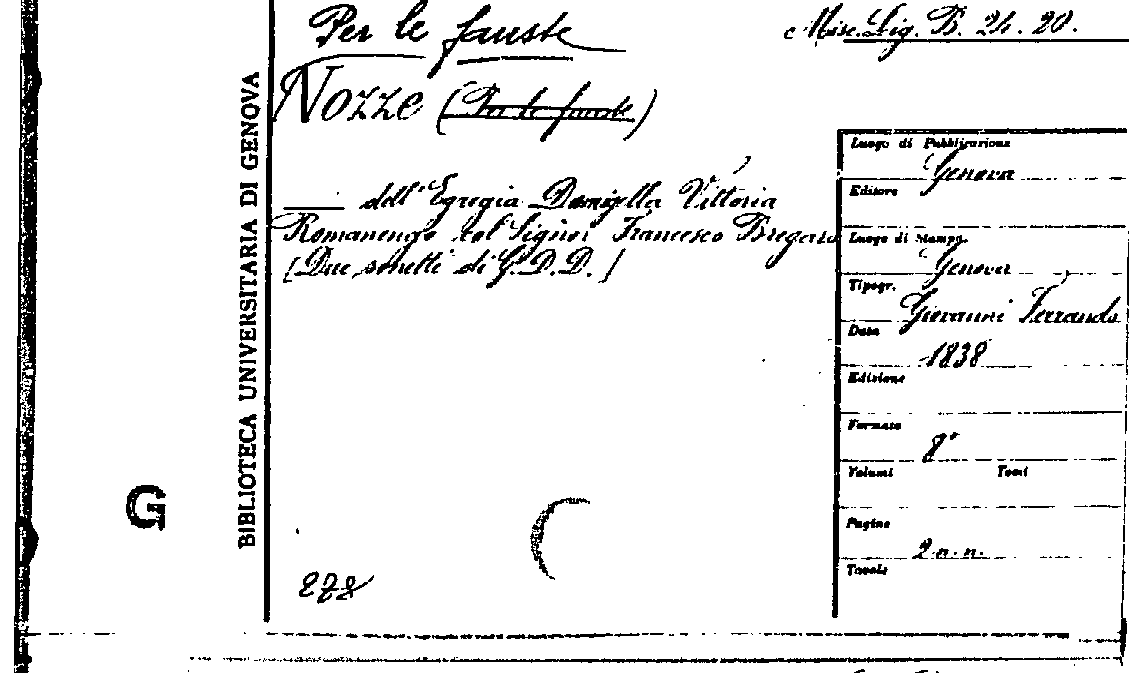 Per le fauste
Misc. Lig. B. 24. 20.
Nozze (Per le fauste)
BIBLIOTECA UNIVERSITARIA DI GENOVA
dell' Egregia Damigella Vittoria
Romanengo col Signor Francesco
[Due sonetti di G. D. D.]
Luogo di Pubblicazione
Genova
Editore
Luogo di Stampa
Genova
Tipogr.
Giovanni Ferrando
Data
1838
Edizione
Formato
8°
Volumi Tomi
Pagine
2 n. n.
Tavole
G
278